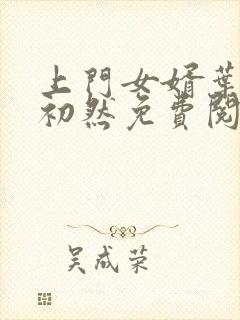 上門女婿葉
初然免費閱
吴成荣